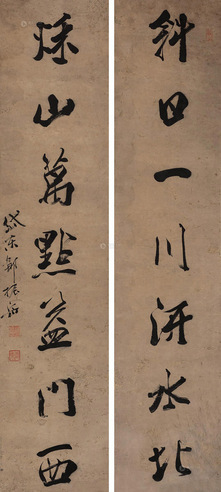 斜日一川汧水北
秋山萬點益門西
岱東鄒振岳